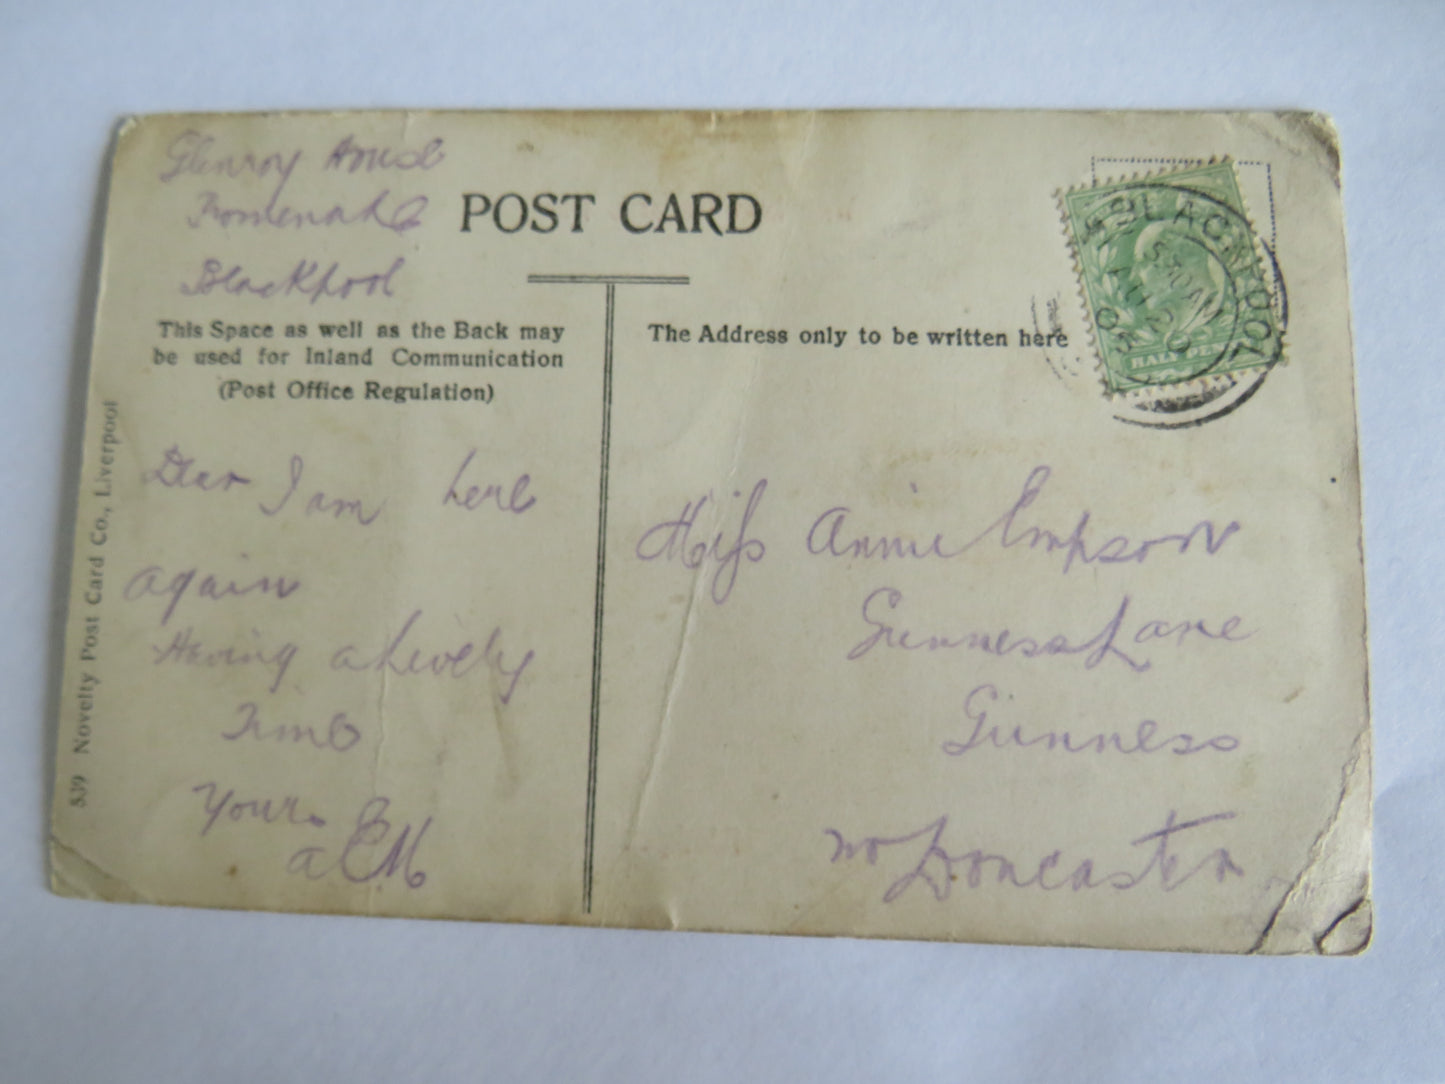 Glenroy House
Promenade
Blackpool
POST CARD
This Space as well as the Back may
be used for Inland Communication
(Post Office Regulation)
The Address only to be written here
BLACKPOOL
AU 29
05
HALFPENNY
Dear I am here
again
Having a Lively
Time
Yours
a E M
Miss Annie Empson
Gunness Lane
Gunness
nr Doncaster
539 Novelty Post Card Co., Liverpool